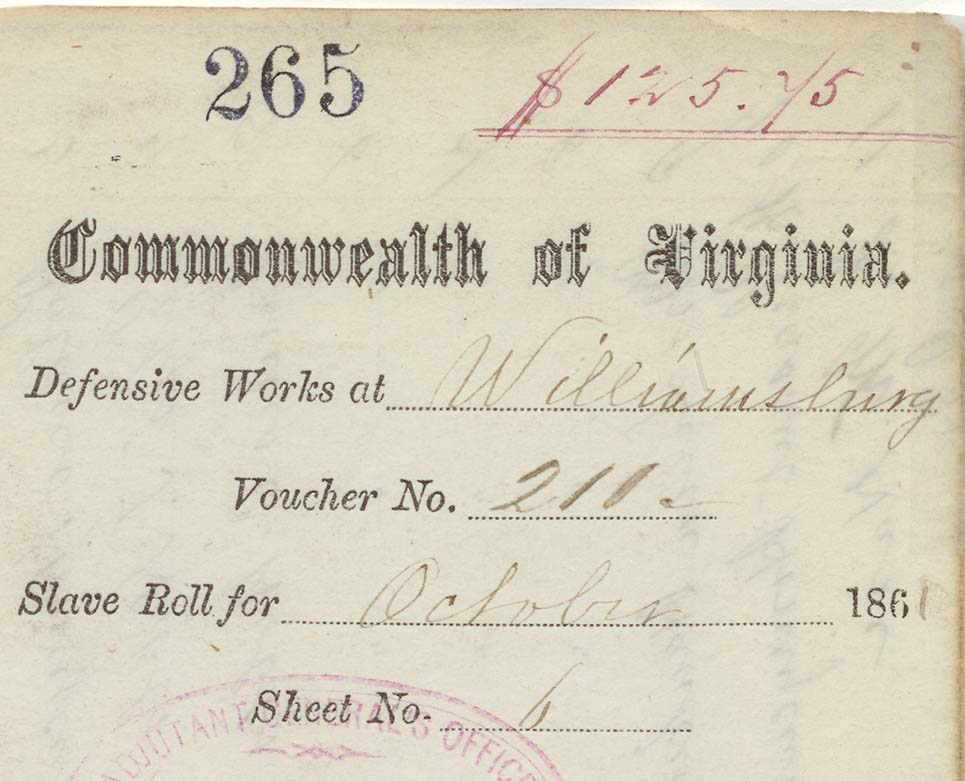 265
$125.75
Commonwealth of Virginia.
Defensive Works at Williamsburg
Voucher No. 210.
Slave Roll for October 1861
Sheet No. 6
ADJUTANT GENERAL'S OFFICE